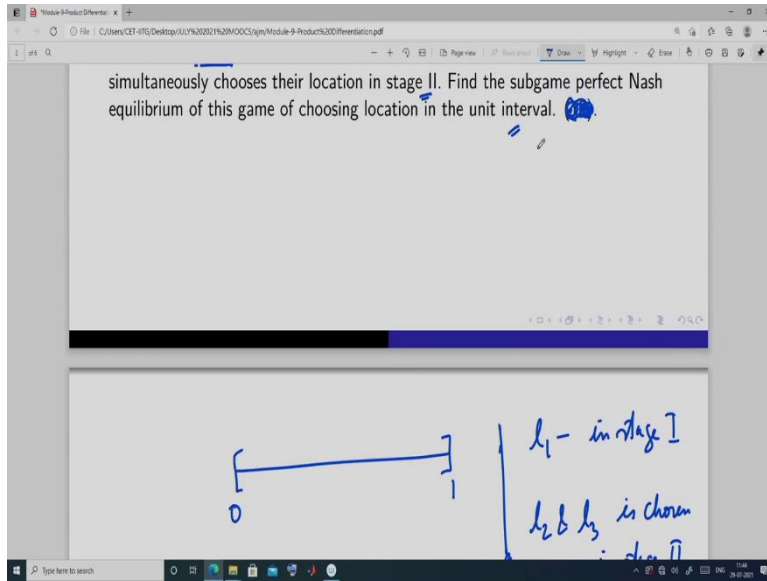 *Module-9-Product Differentiat
File | C:/Users/CET-IITG/Desktop/JULY%202021%20MOOCS/ajm/Module-9-Product%20Differentiation.pdf
of 6
Page view
Read aloud
Draw
Highlight
Erase
simultaneously chooses their location in stage II. Find the subgame perfect Nash
equilibrium of this game of choosing location in the unit interval.
0
1
l1 - in stage I
l2 & l3 is chosen
in stage II
Type here to search
ENG
11:44
29-07-2021